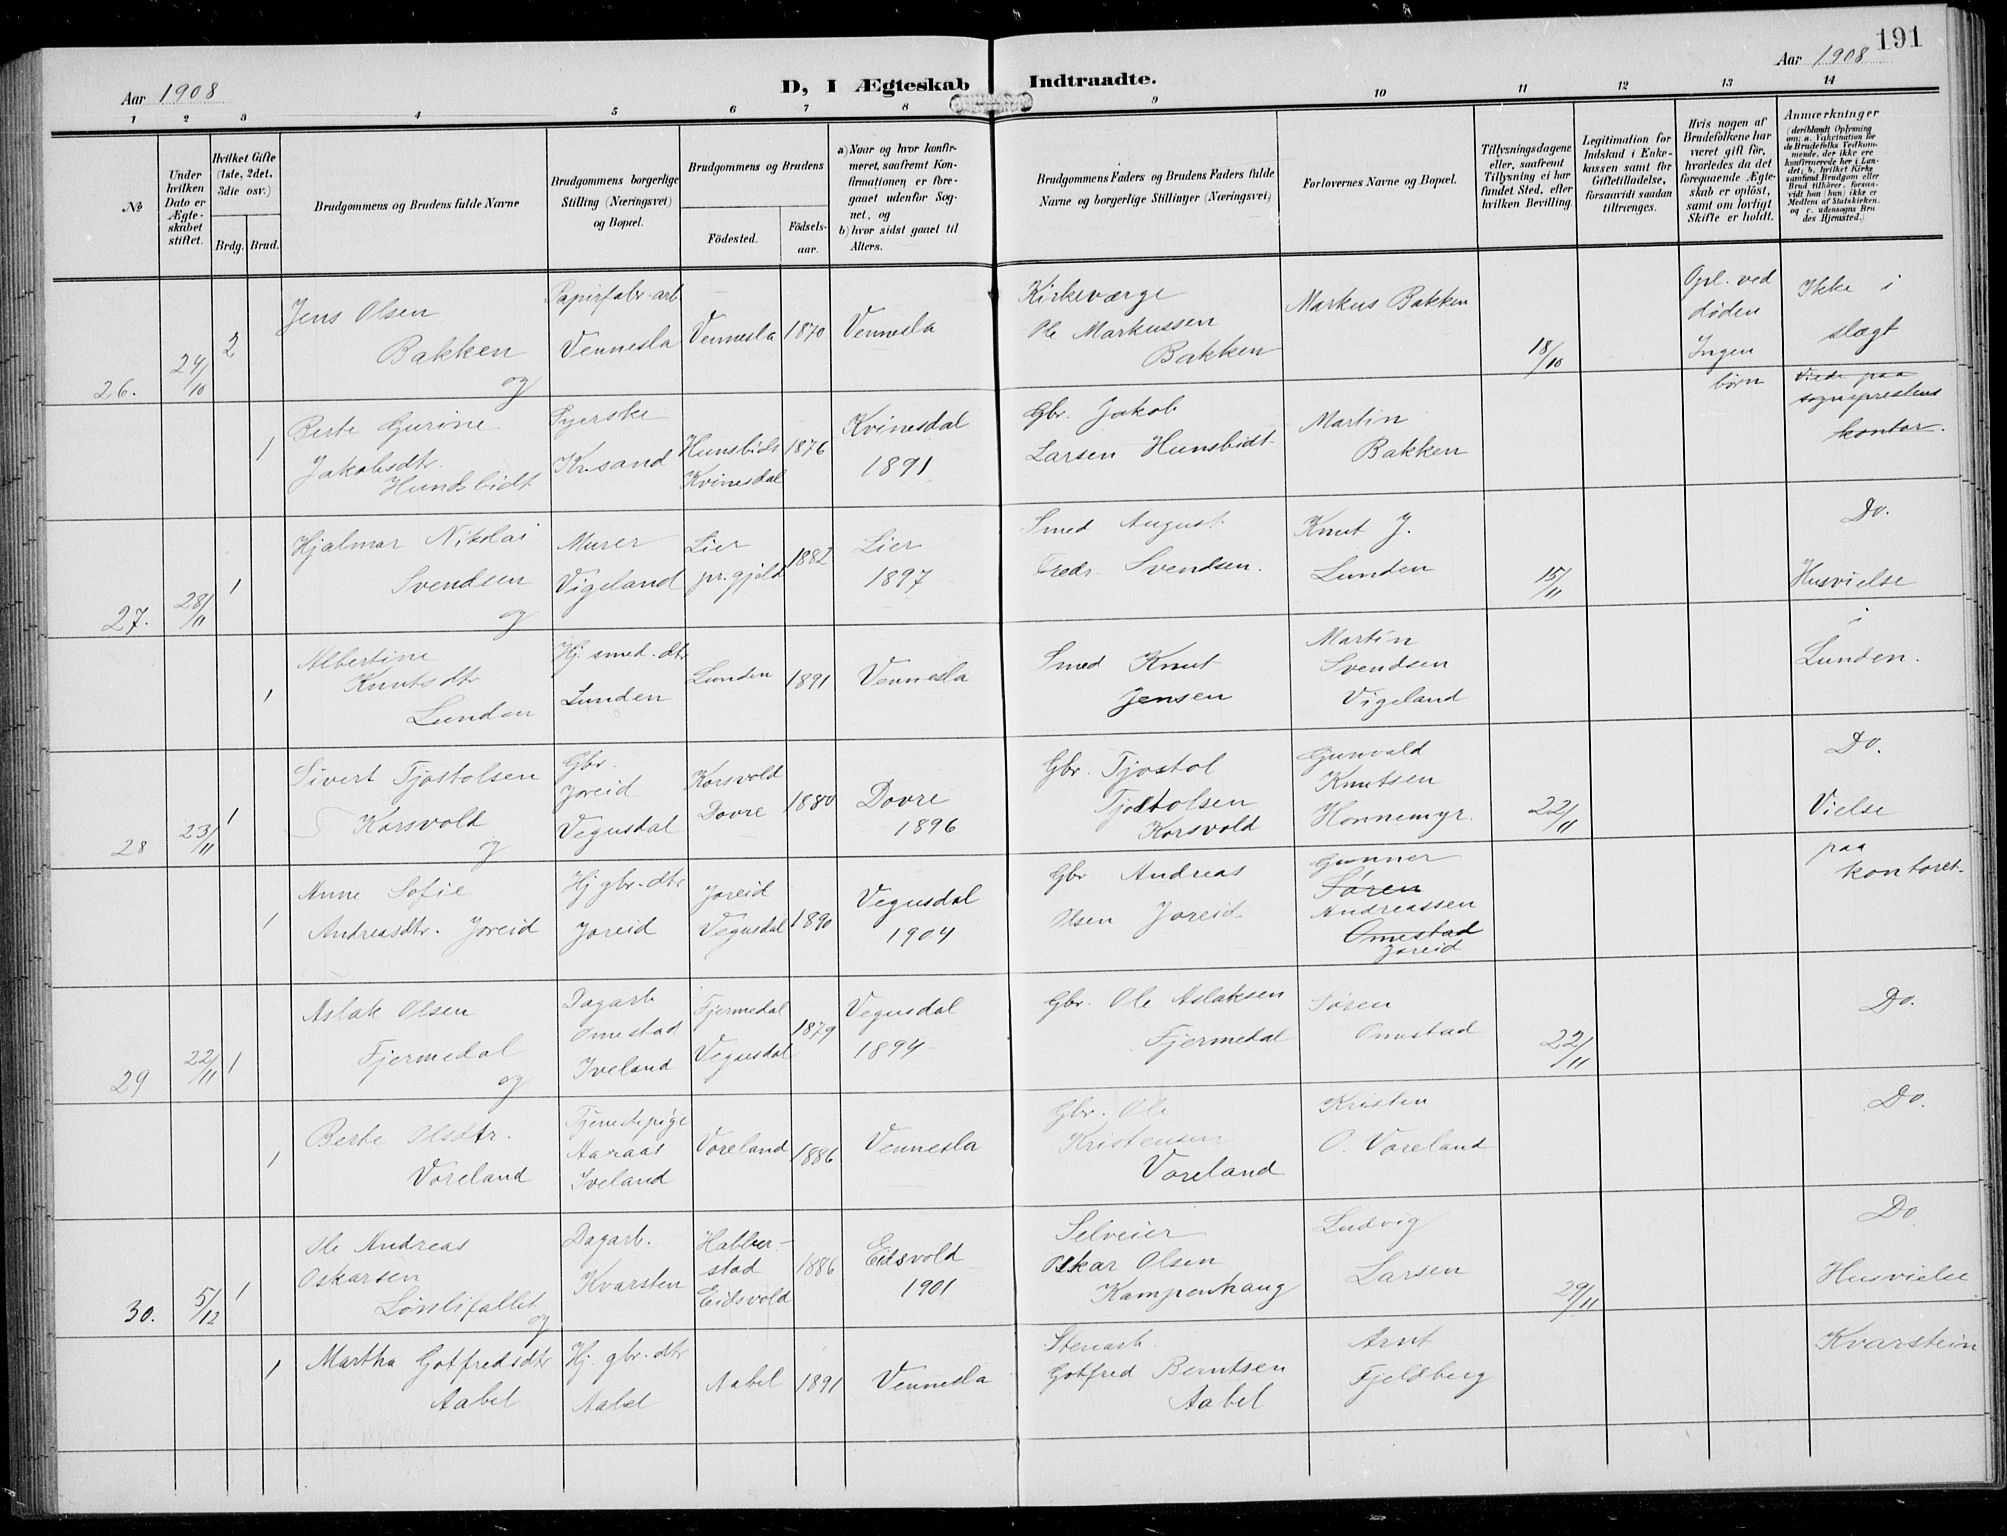 191
Aar 1908
D, I Ægteskab Indtraadte.
Aar 1908
1 2 3 4 5 6 7 8 9 10 11 12 13 14
№
Under hvilken Dato er Ægteskabet stiftet.
Hvilket Gifte (1ste, 2det, 3die osv.)
Brdg. Brud.
Brudgommens og Brudens fulde Navne
Brudgommens borgerlige Stilling (Næringsvei) og Bopæl.
Brudgommens og Brudens
Födested.
Födselsaar.
a) Naar og hvor konfirmeret, saafremt Konfirmationen er foregaaet udenfor Sognet, og
b) hvor sidst gaaet til Alters.
Brudgommens Faders og Brudens Faders fulde Navne og borgerlige Stillinger (Næringsvei)
Forlovernes Navne og Bopæl.
Tillysningsdagene eller, saafremt Tillysning ei har fundet Sted, efter hvilken Bevilling.
Legitimation for Indskud i Enkekassen samt for Giftetilladelse, forsaavidt saadan tiltrænges.
Hvis nogen af Brudefolkene har været gift för, hvorledes da det foregaaende Ægteskab er oplöst, samt om lovligt Skifte er holdt.
Anmærkninger
(deriblandt Oplysning om: a. Vakcination for de Brudefolks Vedkommende, der ikke ere konfirmerede her i Landet; b. hvilket Kirkesamfund Brudgom eller Brud tilhörer, forsaavidt han (hun) ikke er Medlem af Statskirken, og c. udensogns Brudes Hjemsted.)
26. 24/10 2 Jens Olsen Bakken og
Papirfabr. arb Vennesla
Vennesla 1870 Vennesla
Kirkeværge Ole Markussen Bakken
Markus Bakken
18/10
Opl. ved døden Ingen børn
Ikke i slægt
Viede paa sogneprestens kontor.
1 Berte Gurine Jakobsdtr. Hundsbidt
Syerske Kr.sand
Hunsbidt Kvinesdal 1876 Kvinesdal 1891
Gbr. Jakob Larsen Hunsbidt
Martin Bakken
27. 28/11 1 Hjalmar Nikolai Svendsen og
Murer Vigeland
Lier pr.gjeld 1882 Lier 1897
Smed August Fredr. Svendsen.
Knut J. Lunden
15/11
Do.
Husvielse i Lunden.
1 Albertine Knutsdtr Lunden
Hj. smed. dtr Lunden
Lunden 1891 Vennesla
Smed Knut Jensen
Martin Svendsen Vigeland
28 23/11 1 Sivert Tjostolsen Korsvold og
Gbr. Joreid Vegusdal
Korsvold Dovre 1880 Dovre 1896
Gbr. Tjostol Tjostolsen Korsvold
Gunvald Knutsen Honnemyr.
22/11
Do.
Vielse paa kontoret
1 Anne Sofie Andreasdtr. Joreid
Hj gbr. dtr Joreid
Joreid Vegusdal 1890 Vegusdal 1904
Gbr Andreas Olsen Joreid
Gunner Søren Andreassen Omestad Joreid
29 22/11 1 Aslak Olsen Fjermedal og
Dagarb Omestad Iveland
Fjermedal Vegusdal 1879 Vegusdal 1894
Gbr. Ole Aslaksen Fjermedal
Søren Omestad
22/11
Do.
1 Berte Olsdtr. Voreland
Tjenestepige Aaraas Iveland
Voreland 1886 Vennesla
Gbr. Ole Kristensen Voreland
Kristen O. Voreland
Do.
30. 5/12 1 Ole Andreas Oskarsen Lønslifallet og
Dagarb. Kvarsten
Habberstad Eidsvold 1886 Eidsvold 1901
Selveier Oskar Olsen Kampenhaug
Ludvig Larsen
29/11
Do
Husvielse Kvarstein
1 Martha Gotfredsdtr Aabel
Hj. gbr. dtr Aabel
Aabel 1891 Vennesla
Stenarb. Gotfred Berntsen Aabel
Arnt Fjeldberg